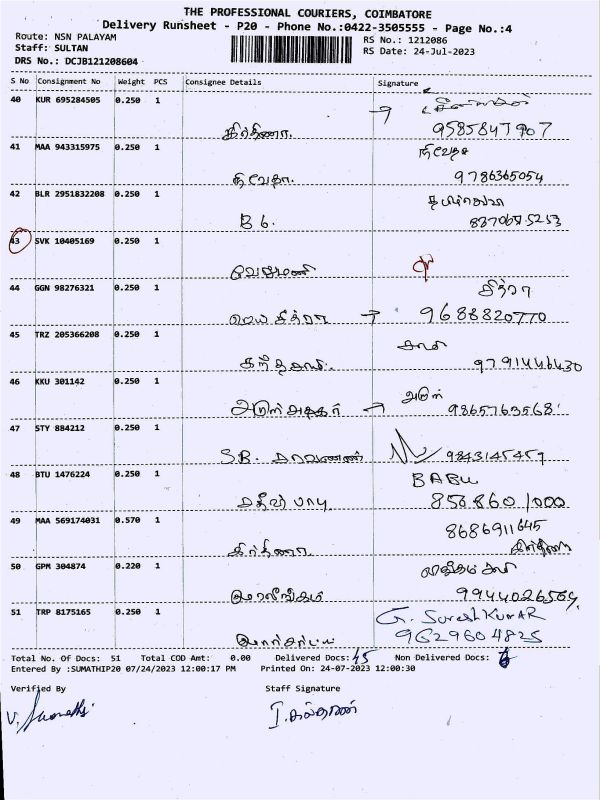 THE PROFESSIONAL COURIERS, COIMBATORE
Delivery Runsheet - P20 - Phone No.:0422-3505555 - Page No.:4
Route: NSN PALAYAM
RS No.: 1212086
Staff: SULTAN
RS Date: 24-Jul-2023
DRS No.: DCJB121208604
S No Consignment No Weight PCS Consignee Details Signature
40 KUR 695284505 0.250 1
கிர்திணா. 9585847907
41 MAA 943315975 0.250 1 நிவேதா
நிவேதா. 9786365054
42 BLR 2951832208 0.250 1
43 SVK 10405169 0.250 1
வேலுமணி
44 GGN 98276321 0.250 1 சித்ரா
ஜெய சித்ரா → 9688820770
45 TRZ 205366208 0.250 1
9791446430
46 KKU 301142 0.250 1 அருள்
→ 9865763568
47 STY 884212 0.250 1
S.B. சரவணண் 9843145457
48 BTU 1476224 0.250 1 BABU
பாபு 8568601000
49 MAA 569174031 0.570 1 8686911645
கிர்திணா
50 GPM 304874 0.220 1
9944026564
51 TRP 8175165 0.250 1 G. Suresh KUMAR
9629604825
Total No. Of Docs: 51 Total COD Amt: 0.00 Delivered Docs: 45 Non Delivered Docs: 6
Entered By :SUMATHIP20 07/24/2023 12:00:17 PM Printed On: 24-07-2023 12:00:30
Verified By Staff Signature
V. Sumathi